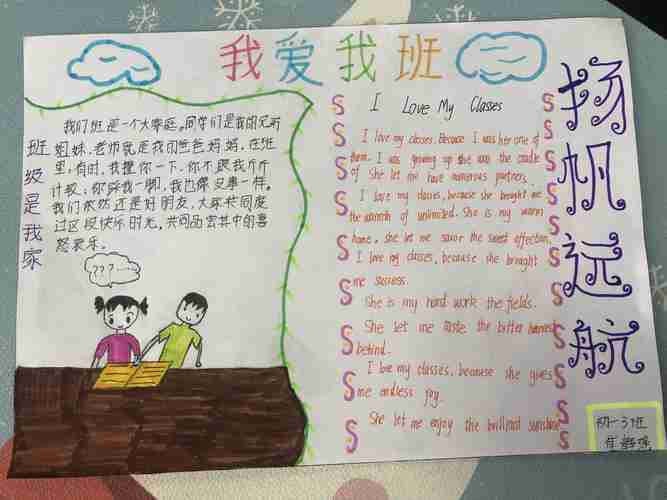 我爱我班
班级是我家
我们班是一个大家庭。同学们是我的兄弟
姐妹,老师就是我的爸爸妈妈,在班
里,有时,我撞你一下,你不跟我斤斤
计较,你踩我一脚,我也像没事一样。
我们依然还是好朋友,大家共同度
过这段快乐时光,共同品尝其中的喜
怒哀乐。
???
I Love My Classes
I love my classes. Because I was her one of
them. I was growing up she was the cradle
of She let me have numerous partners.
I love my classes, because she brought me
the warmth of unlimited. She is my warm
home, she let me savor the sweet affection.
I love my classes, because she brought
me success.
She is my hard work the fields.
She let me taste the bitter harvest
behind.
I love my classes, because she gives
me endless joy.
She let me enjoy the brilliant sunshine
扬帆远航
初一3班